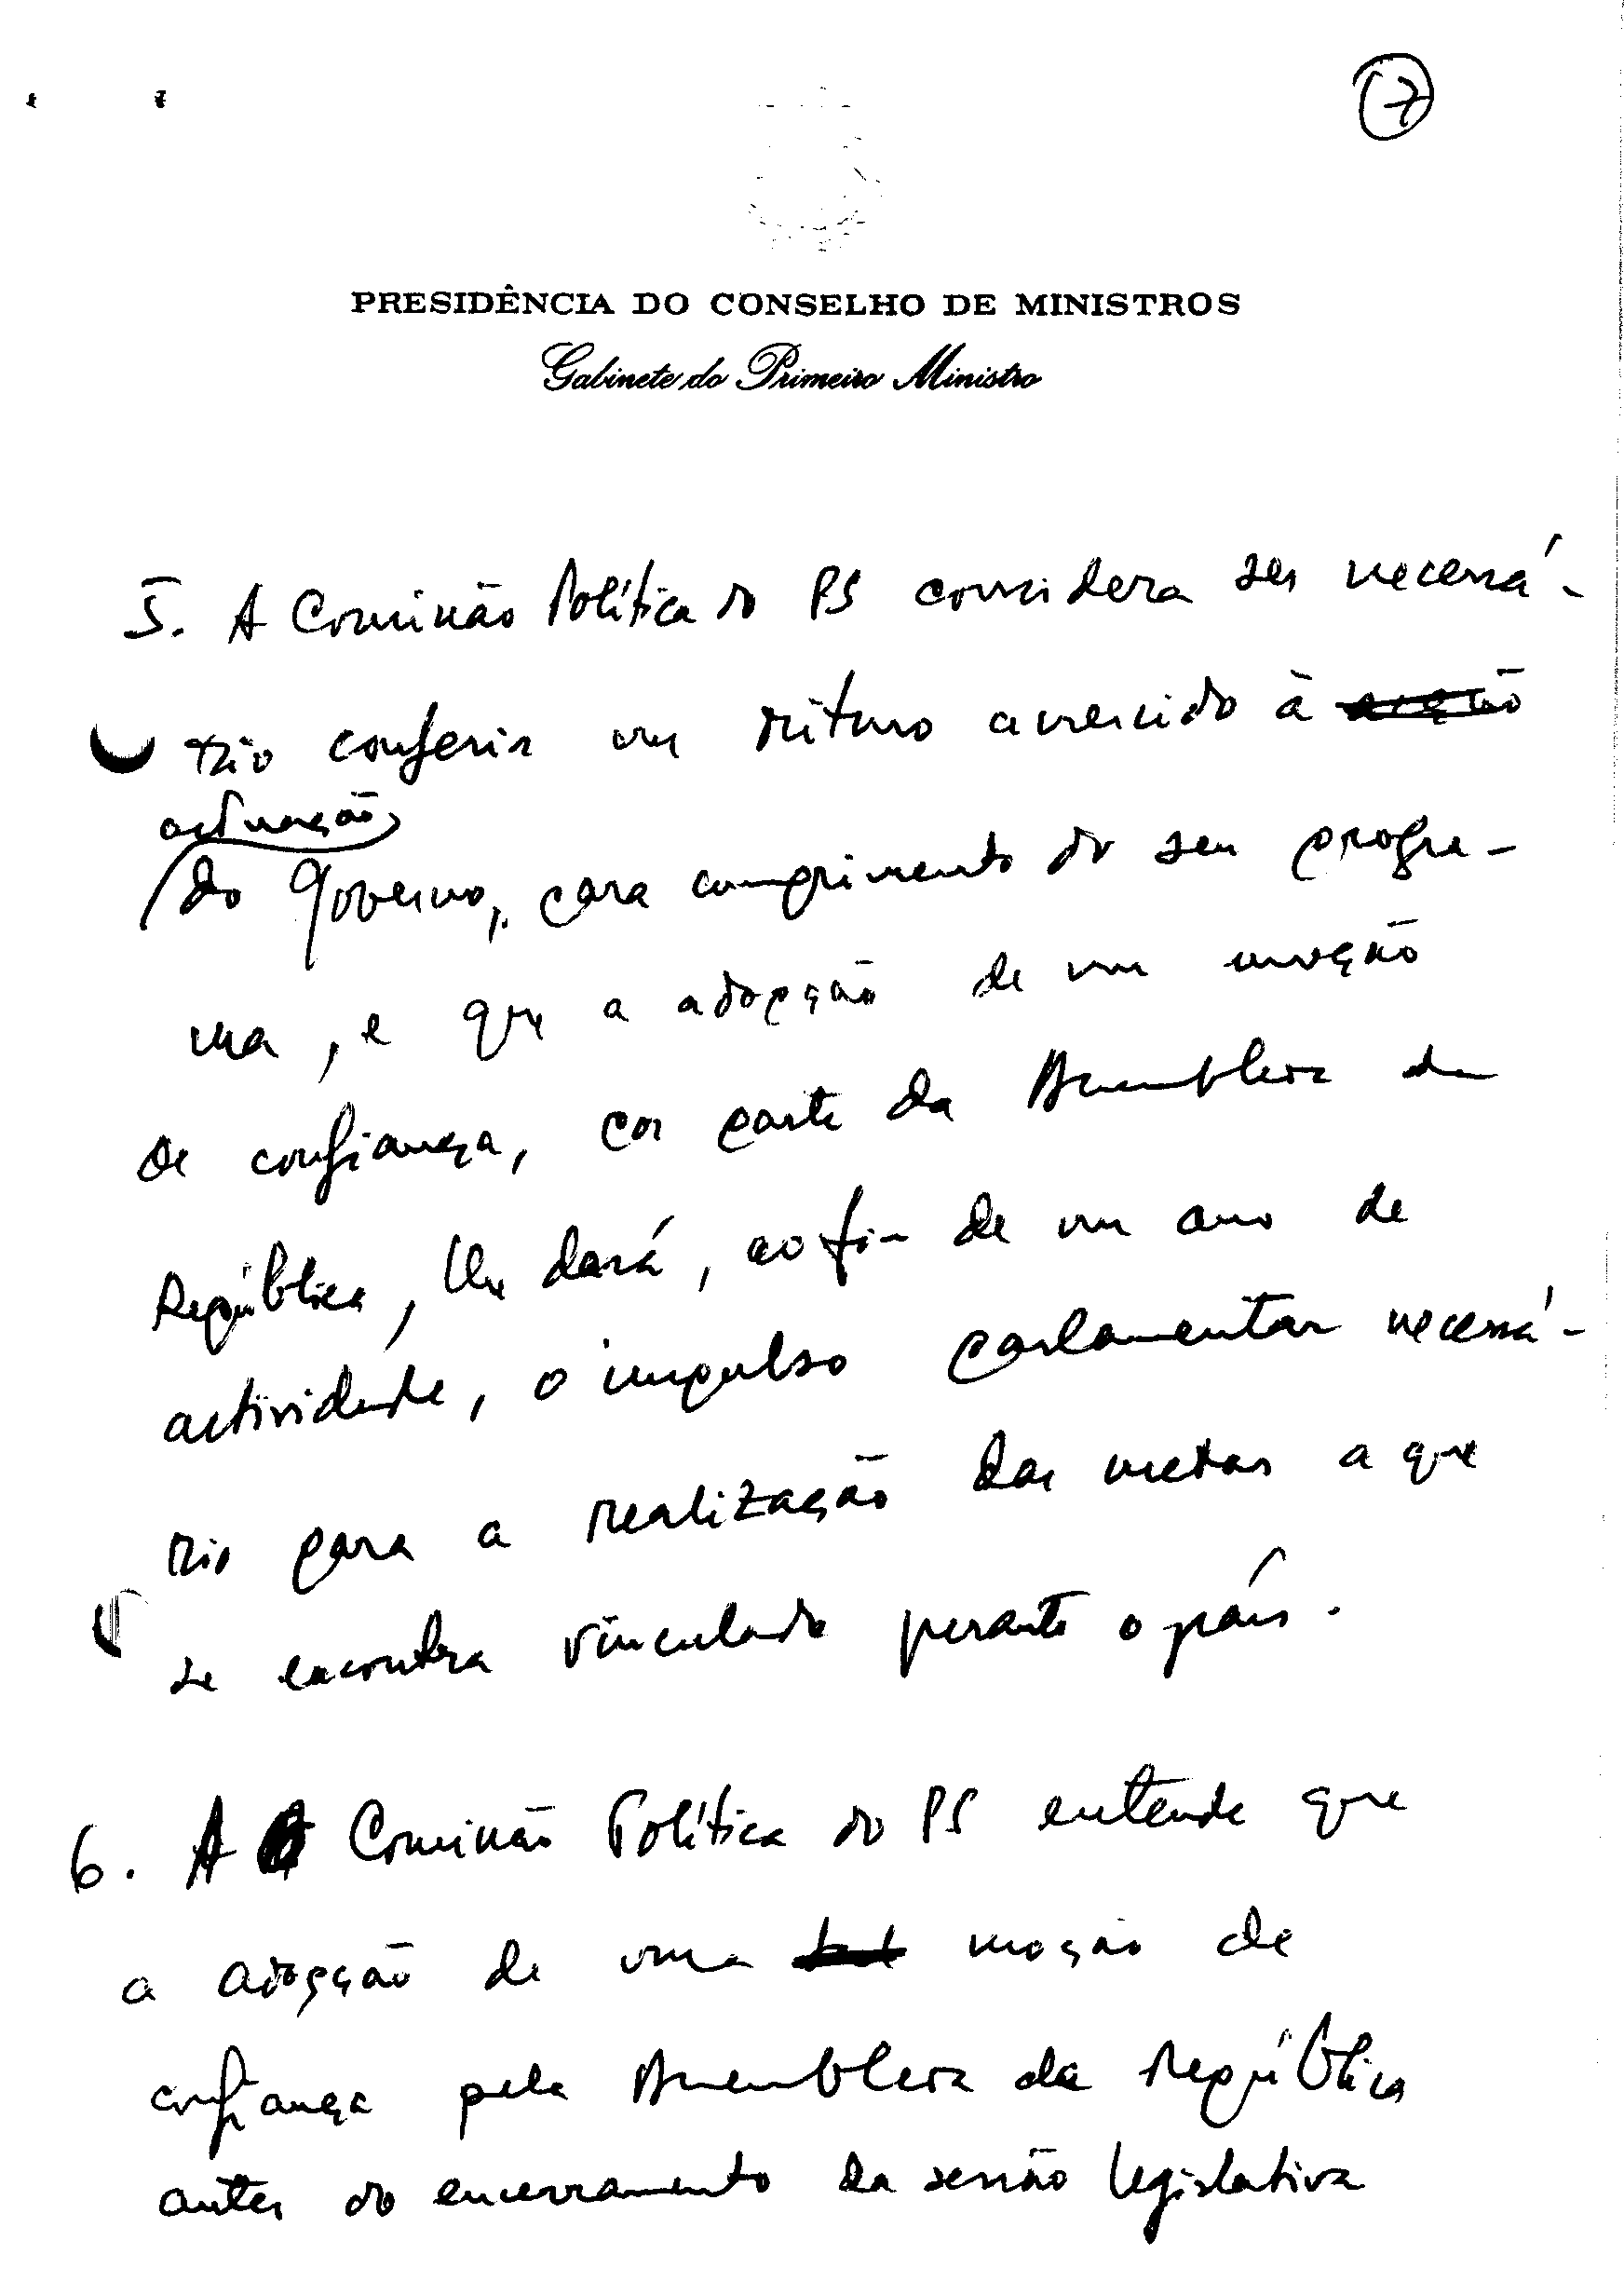 7
PRESIDÊNCIA DO CONSELHO DE MINISTROS
Gabinete do Primeiro Ministro
5. A Comissão Política do PS considera ser necessá-
rio conferir um ritmo acrescido à acção
actuação
do Governo, para cumprimento do seu progra-
ma, e que a adopção de um moção
de confiança, por parte da Assembleia da
República, lhe dará, ao fim de um ano de
actividade, o impulso parlamentar necessá-
rio para a realização das metas a que
se encontra vinculado perante o país.
6. A Comissão Política do PS entende que
a adopção de uma moção de
confiança pela Assembleia da República
antes do encerramento da sessão legislativa